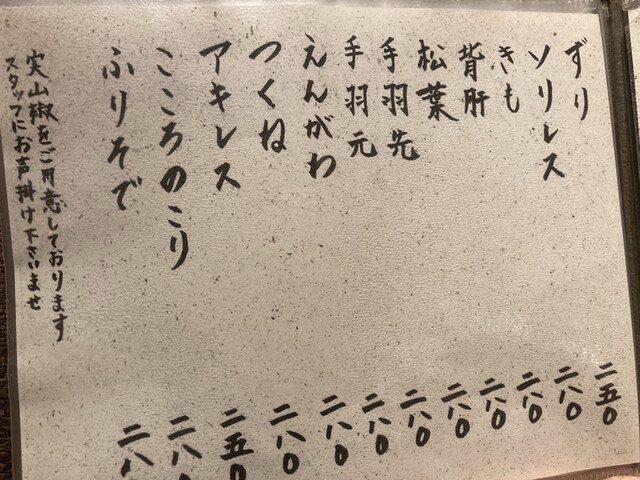 ずり 二五〇
ソリレス 二八〇
きも 二八〇
背肝 二八〇
松葉 二八〇
手羽先 二八〇
手羽元 二八〇
えんがわ 二八〇
つくね 二八〇
アキレス 二五〇
こころのこり 二八〇
ふりそで 二八
実山椒をご用意しております
スタッフにお声掛け下さいませ